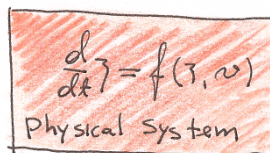 d/dt ξ = f(ξ, v)
Physical System